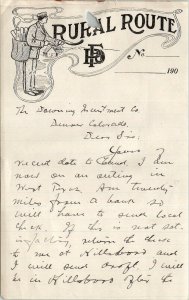 RURAL ROUTE
No
190
The Downing Investment Co.
Denver Colorado.
Dear Sir.
Yours of
recent date to hand. I am
now on an outing in
West Texas. Am twenty
miles from a bank so
will have to send local
check. If this is not sat-
isfactory, return the these
to me at Hillsboro and
I will send draft. I will
be in Hillsboro after the